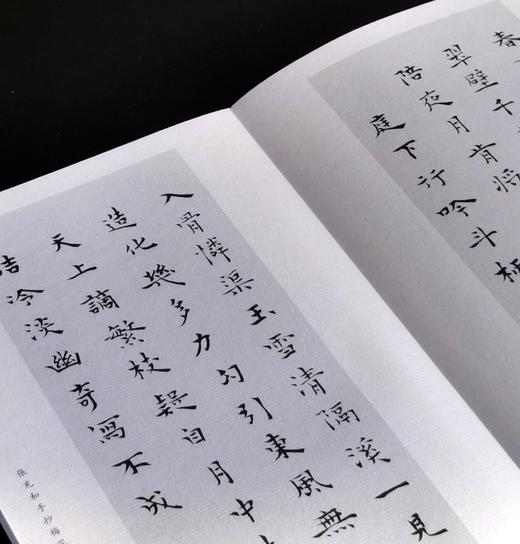 春
翠壁千
陪夜月肯將
庭下行吟斗柄
入骨憐渠玉雪清隔溪一見
造化幾多力勾引東風無
天上謫繁枝疑自月中
冷淡幽奇寫不成
張光和手抄梅花